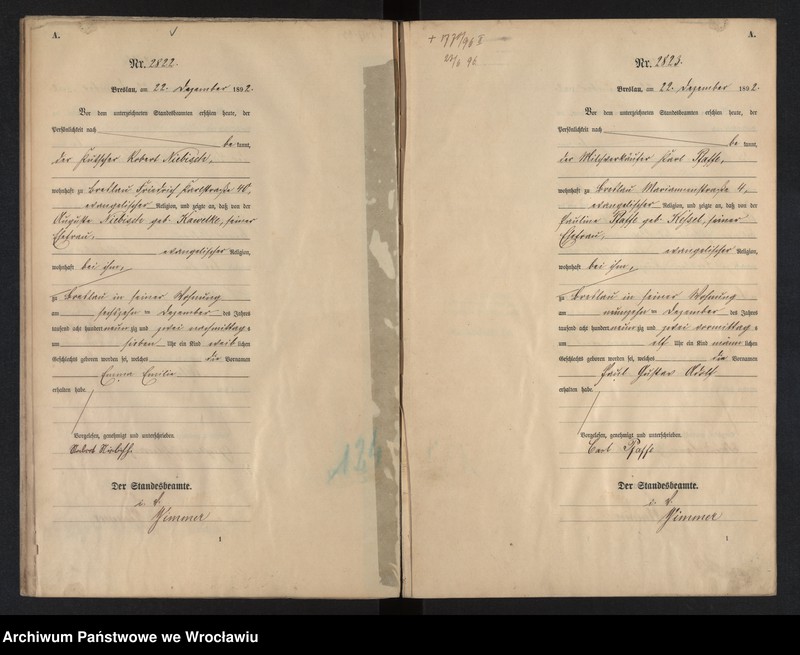 A.
Nr. 2822.
Breslau, am 22. Dezember 1892.
Vor dem unterzeichneten Standesbeamten erschien heute, der
Persönlichkeit nach
be kannt,
der Kutscher Robert Niebisch,
wohnhaft zu Breslau Friedrich Karlstraße 40,
evangelischer Religion, und zeigte an, daß von der
Auguste Niebisch geb. Kawelke, seiner
Ehefrau,
evangelischer Religion,
wohnhaft bei ihm,
zu Breslau in seiner Wohnung
am sechszehnten Dezember des Jahres
tausend acht hundert neun zig und zwei nachmittags
um sieben Uhr ein Kind weib lichen
Geschlechts geboren worden sei, welches die Vornamen
Emma Emilie
erhalten habe.
Vorgelesen, genehmigt und unterschrieben.
Robert
Der Standesbeamte.
Zimmer
1
A.
23/6 96
Nr. 2823.
Breslau, am 22. Dezember 1892.
Vor dem unterzeichneten Standesbeamten erschien heute, der
Persönlichkeit nach
be kannt,
der Milchverkäufer Karl Pfaffe,
wohnhaft zu Breslau Mariannenstraße 4,
evangelischer Religion, und zeigte an, daß von der
Pauline Pfaffe geb. Kissel, seiner
Ehefrau,
evangelischer Religion,
wohnhaft bei ihm,
zu Breslau in seiner Wohnung
am neunzehnten Dezember des Jahres
tausend acht hundert neun zig und zwei vormittags
um elf Uhr ein Kind männ lichen
Geschlechts geboren worden sei, welches die Vornamen
Paul Gustav Adolf
erhalten habe.
Vorgelesen, genehmigt und unterschrieben.
Carl Pfaffe
Der Standesbeamte.
Zimmer
1
Archiwum Państwowe we Wrocławiu